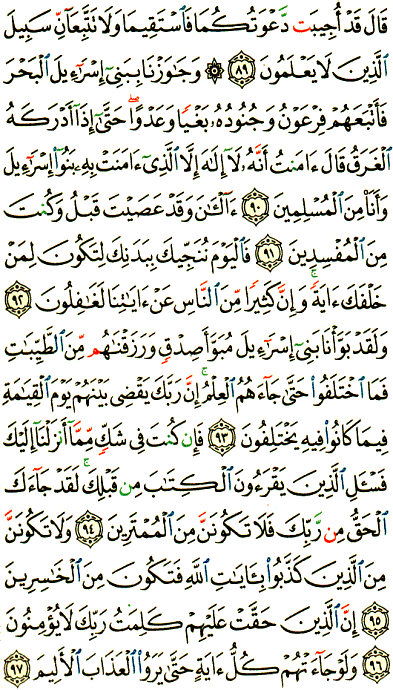 قَالَ قَدْ أُجِيبَت دَّعْوَتُكُمَا فَٱسْتَقِيمَا وَلَا تَتَّبِعَآنِّ سَبِيلَ
ٱلَّذِينَ لَا يَعْلَمُونَ ﴿٨٩﴾ ۞ وَجَٰوَزْنَا بِبَنِىٓ إِسْرَٰٓءِيلَ ٱلْبَحْرَ
فَأَتْبَعَهُمْ فِرْعَوْنُ وَجُنُودُهُۥ بَغْيًا وَعَدْوًا ۖ حَتَّىٰٓ إِذَآ أَدْرَكَهُ
ٱلْغَرَقُ قَالَ ءَامَنتُ أَنَّهُۥ لَآ إِلَٰهَ إِلَّا ٱلَّذِىٓ ءَامَنَتْ بِهِۦ بَنُوٓا۟ إِسْرَٰٓءِيلَ
وَأَنَا۠ مِنَ ٱلْمُسْلِمِينَ ﴿٩٠﴾ ءَآلْـَٰٔنَ وَقَدْ عَصَيْتَ قَبْلُ وَكُنتَ
مِنَ ٱلْمُفْسِدِينَ ﴿٩١﴾ فَٱلْيَوْمَ نُنَجِّيكَ بِبَدَنِكَ لِتَكُونَ لِمَنْ
خَلْفَكَ ءَايَةً ۚ وَإِنَّ كَثِيرًا مِّنَ ٱلنَّاسِ عَنْ ءَايَٰتِنَا لَغَٰفِلُونَ ﴿٩٢﴾
وَلَقَدْ بَوَّأْنَا بَنِىٓ إِسْرَٰٓءِيلَ مُبَوَّأَ صِدْقٍ وَرَزَقْنَٰهُم مِّنَ ٱلطَّيِّبَٰتِ
فَمَا ٱخْتَلَفُوا۟ حَتَّىٰ جَآءَهُمُ ٱلْعِلْمُ ۚ إِنَّ رَبَّكَ يَقْضِى بَيْنَهُمْ يَوْمَ ٱلْقِيَٰمَةِ
فِيمَا كَانُوا۟ فِيهِ يَخْتَلِفُونَ ﴿٩٣﴾ فَإِن كُنتَ فِى شَكٍّ مِّمَّآ أَنزَلْنَآ إِلَيْكَ
فَسْـَٔلِ ٱلَّذِينَ يَقْرَءُونَ ٱلْكِتَٰبَ مِن قَبْلِكَ ۚ لَقَدْ جَآءَكَ
ٱلْحَقُّ مِن رَّبِّكَ فَلَا تَكُونَنَّ مِنَ ٱلْمُمْتَرِينَ ﴿٩٤﴾ وَلَا تَكُونَنَّ
مِنَ ٱلَّذِينَ كَذَّبُوا۟ بِـَٔايَٰتِ ٱللَّهِ فَتَكُونَ مِنَ ٱلْخَٰسِرِينَ
﴿٩٥﴾ إِنَّ ٱلَّذِينَ حَقَّتْ عَلَيْهِمْ كَلِمَتُ رَبِّكَ لَا يُؤْمِنُونَ
﴿٩٦﴾ وَلَوْ جَآءَتْهُمْ كُلُّ ءَايَةٍ حَتَّىٰ يَرَوُا۟ ٱلْعَذَابَ ٱلْأَلِيمَ ﴿٩٧﴾